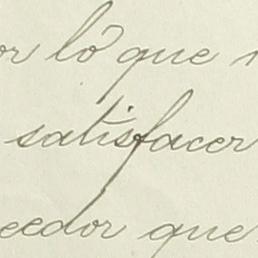 or lo que
satisfacer
eedor que